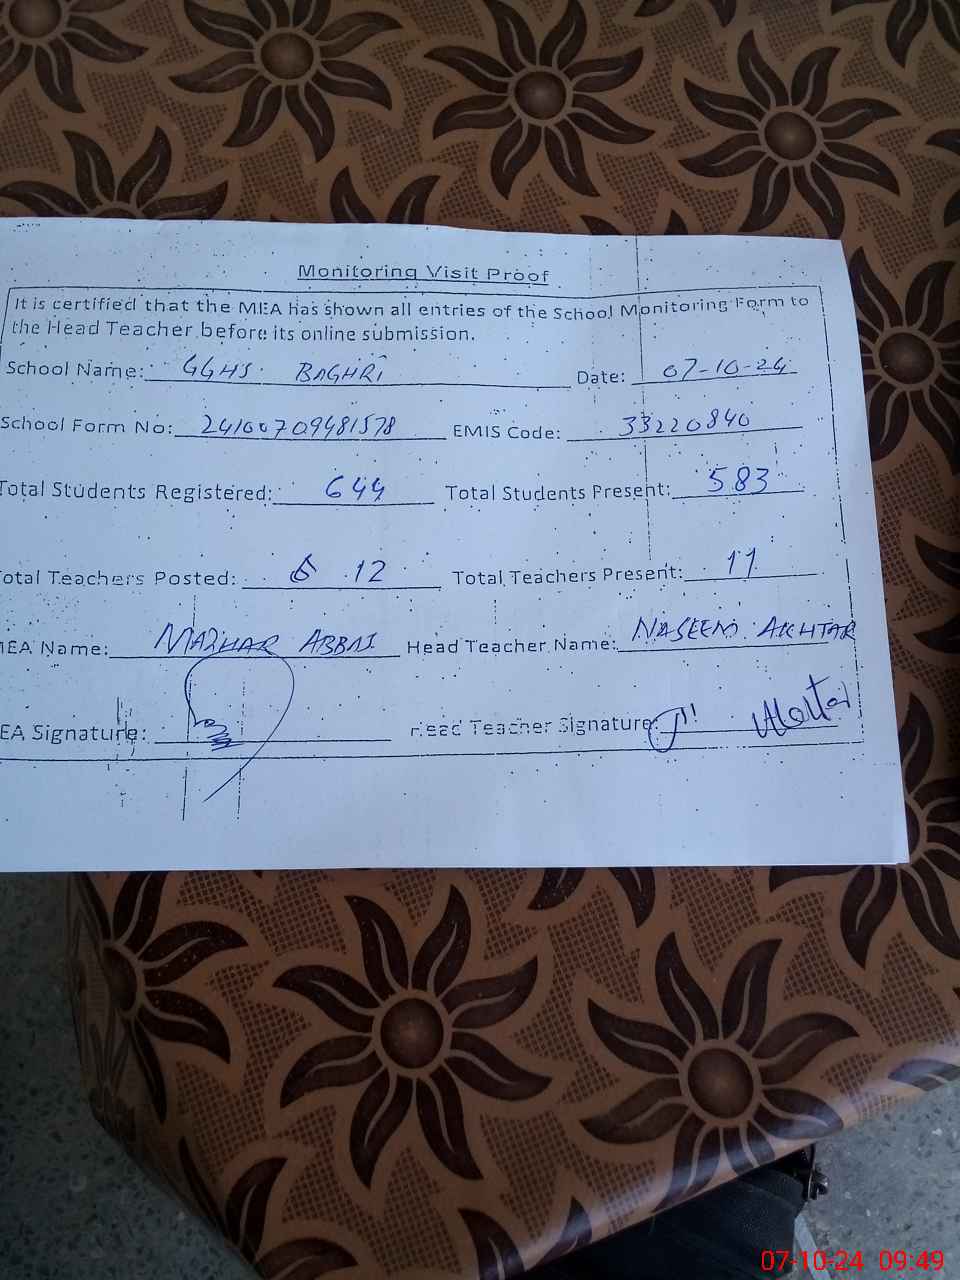 Monitoring Visit Proof
It is certified that the MEA has shown all entries of the School Monitoring Form to
the Head Teacher before its online submission.
School Name: GGHS. BAGHRI Date: 07-10-24
School Form No: 24100709481578 EMIS Code: 33220840
Total Students Registered: 644 Total Students Present: 583
otal Teachers Posted: 12 Total Teachers Present: 11
EA Name: MAZHAR ABBAS Head Teacher Name: NASEEM AKHTAR
EA Signature: Head Teacher Signature:
07-10-24 09:49